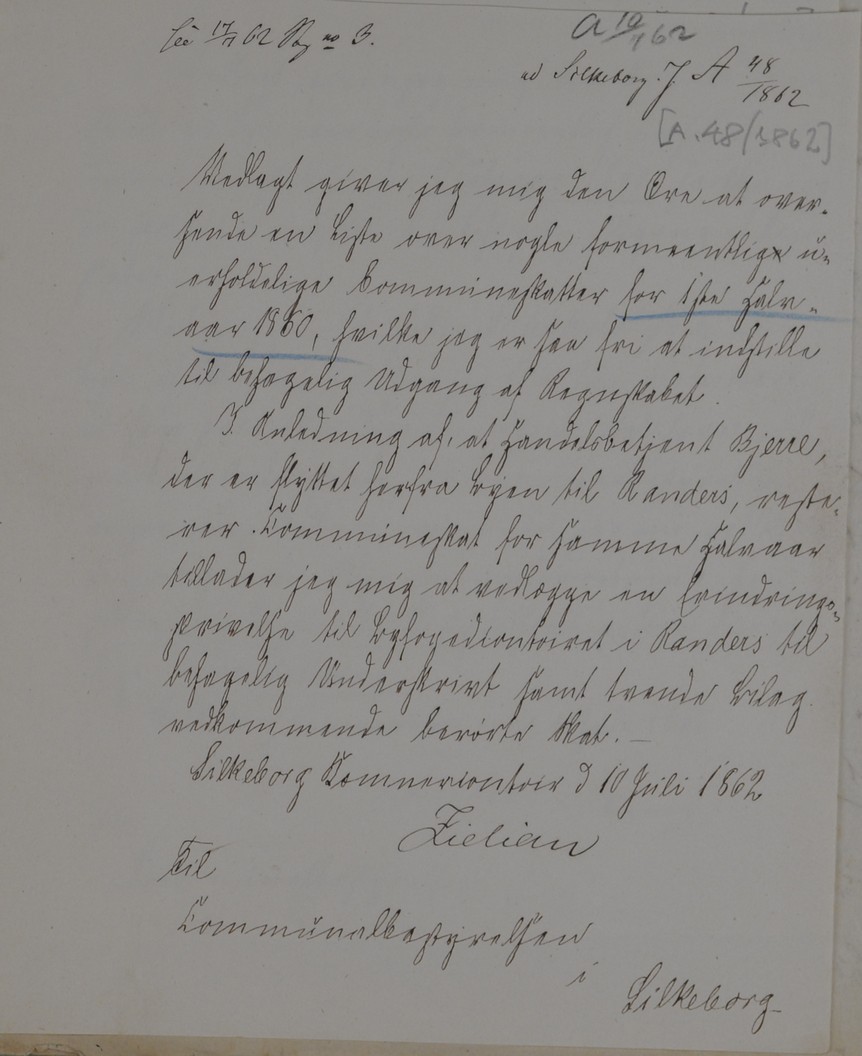 17/7 62 No 3.
A 10/7 62
ad Silkeborg J. A 48/1862
[A.48/1862]
Vedlagt giver jeg mig den Ære at over-
sende en Liste over nogle formeentlig u-
erholdelige Communeskatter for 1ste Halv-
aar 1860, hvilke jeg er saa fri at indstille
til behagelig Udgang af Regnskabet.
I Anledning af, at Handelsbetjent Bjerre,
der er flyttet herfra Byen til Randers, reste-
rer Communeskat for samme Halvaar
tillader jeg mig at vedlægge en Erindrings-
skrivelse til Byfogedcontoiret i Randers til
behagelig Underskrivt samt tvende Bilag
vedkommende berørte Skat. —
Silkeborg Kæmnercontoir d 10 Juli 1862
Zielian
Til
Communalbestyrelsen
i
Silkeborg